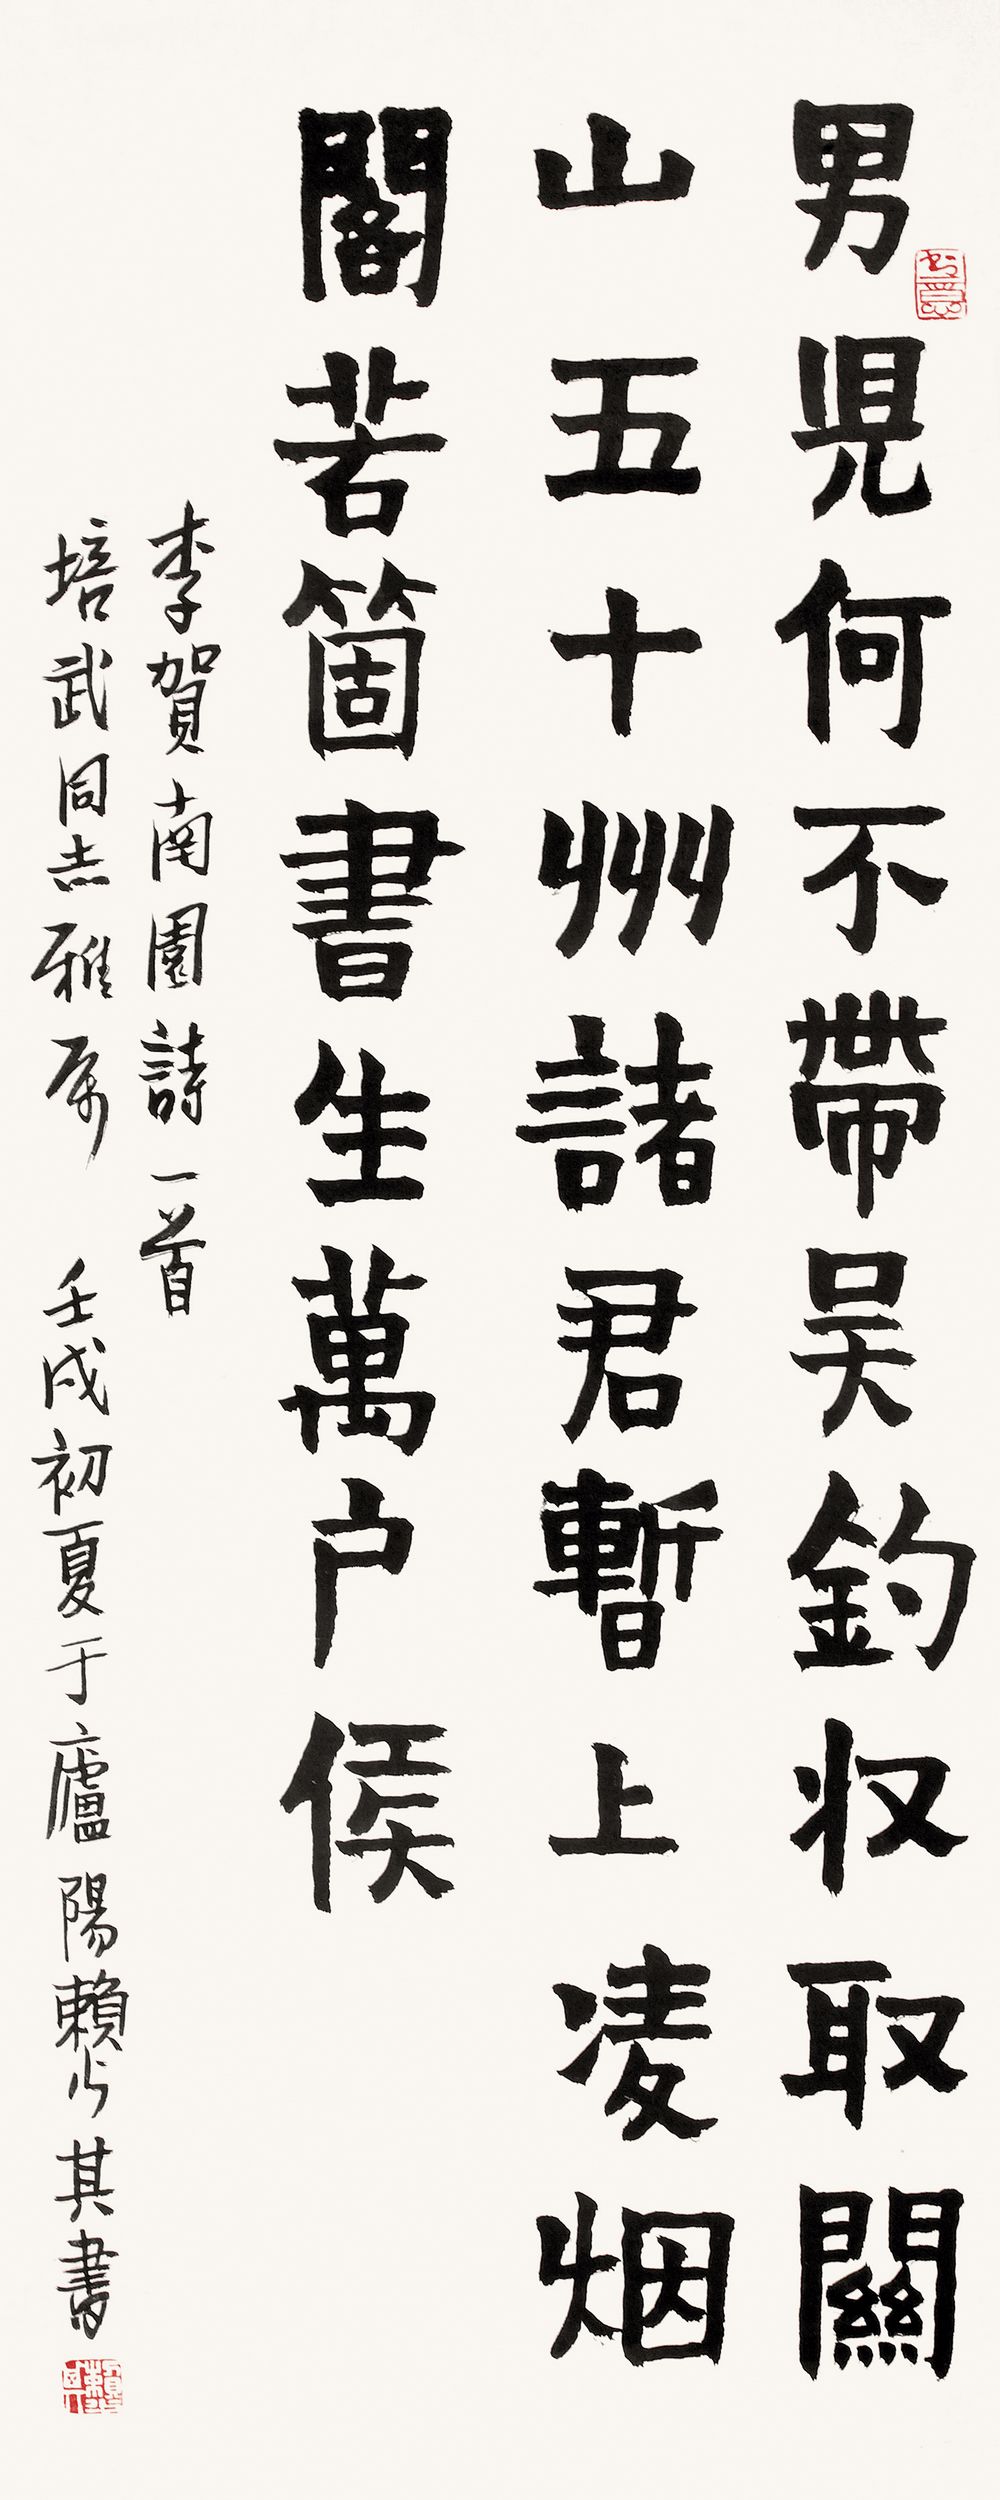 男兒何不帶吴鈎收取關
山五十州諸君暫上凌烟
閣若箇書生萬户侯
李賀南園詩一首
培武同志雅属 壬戌初夏于廬陽賴少其書